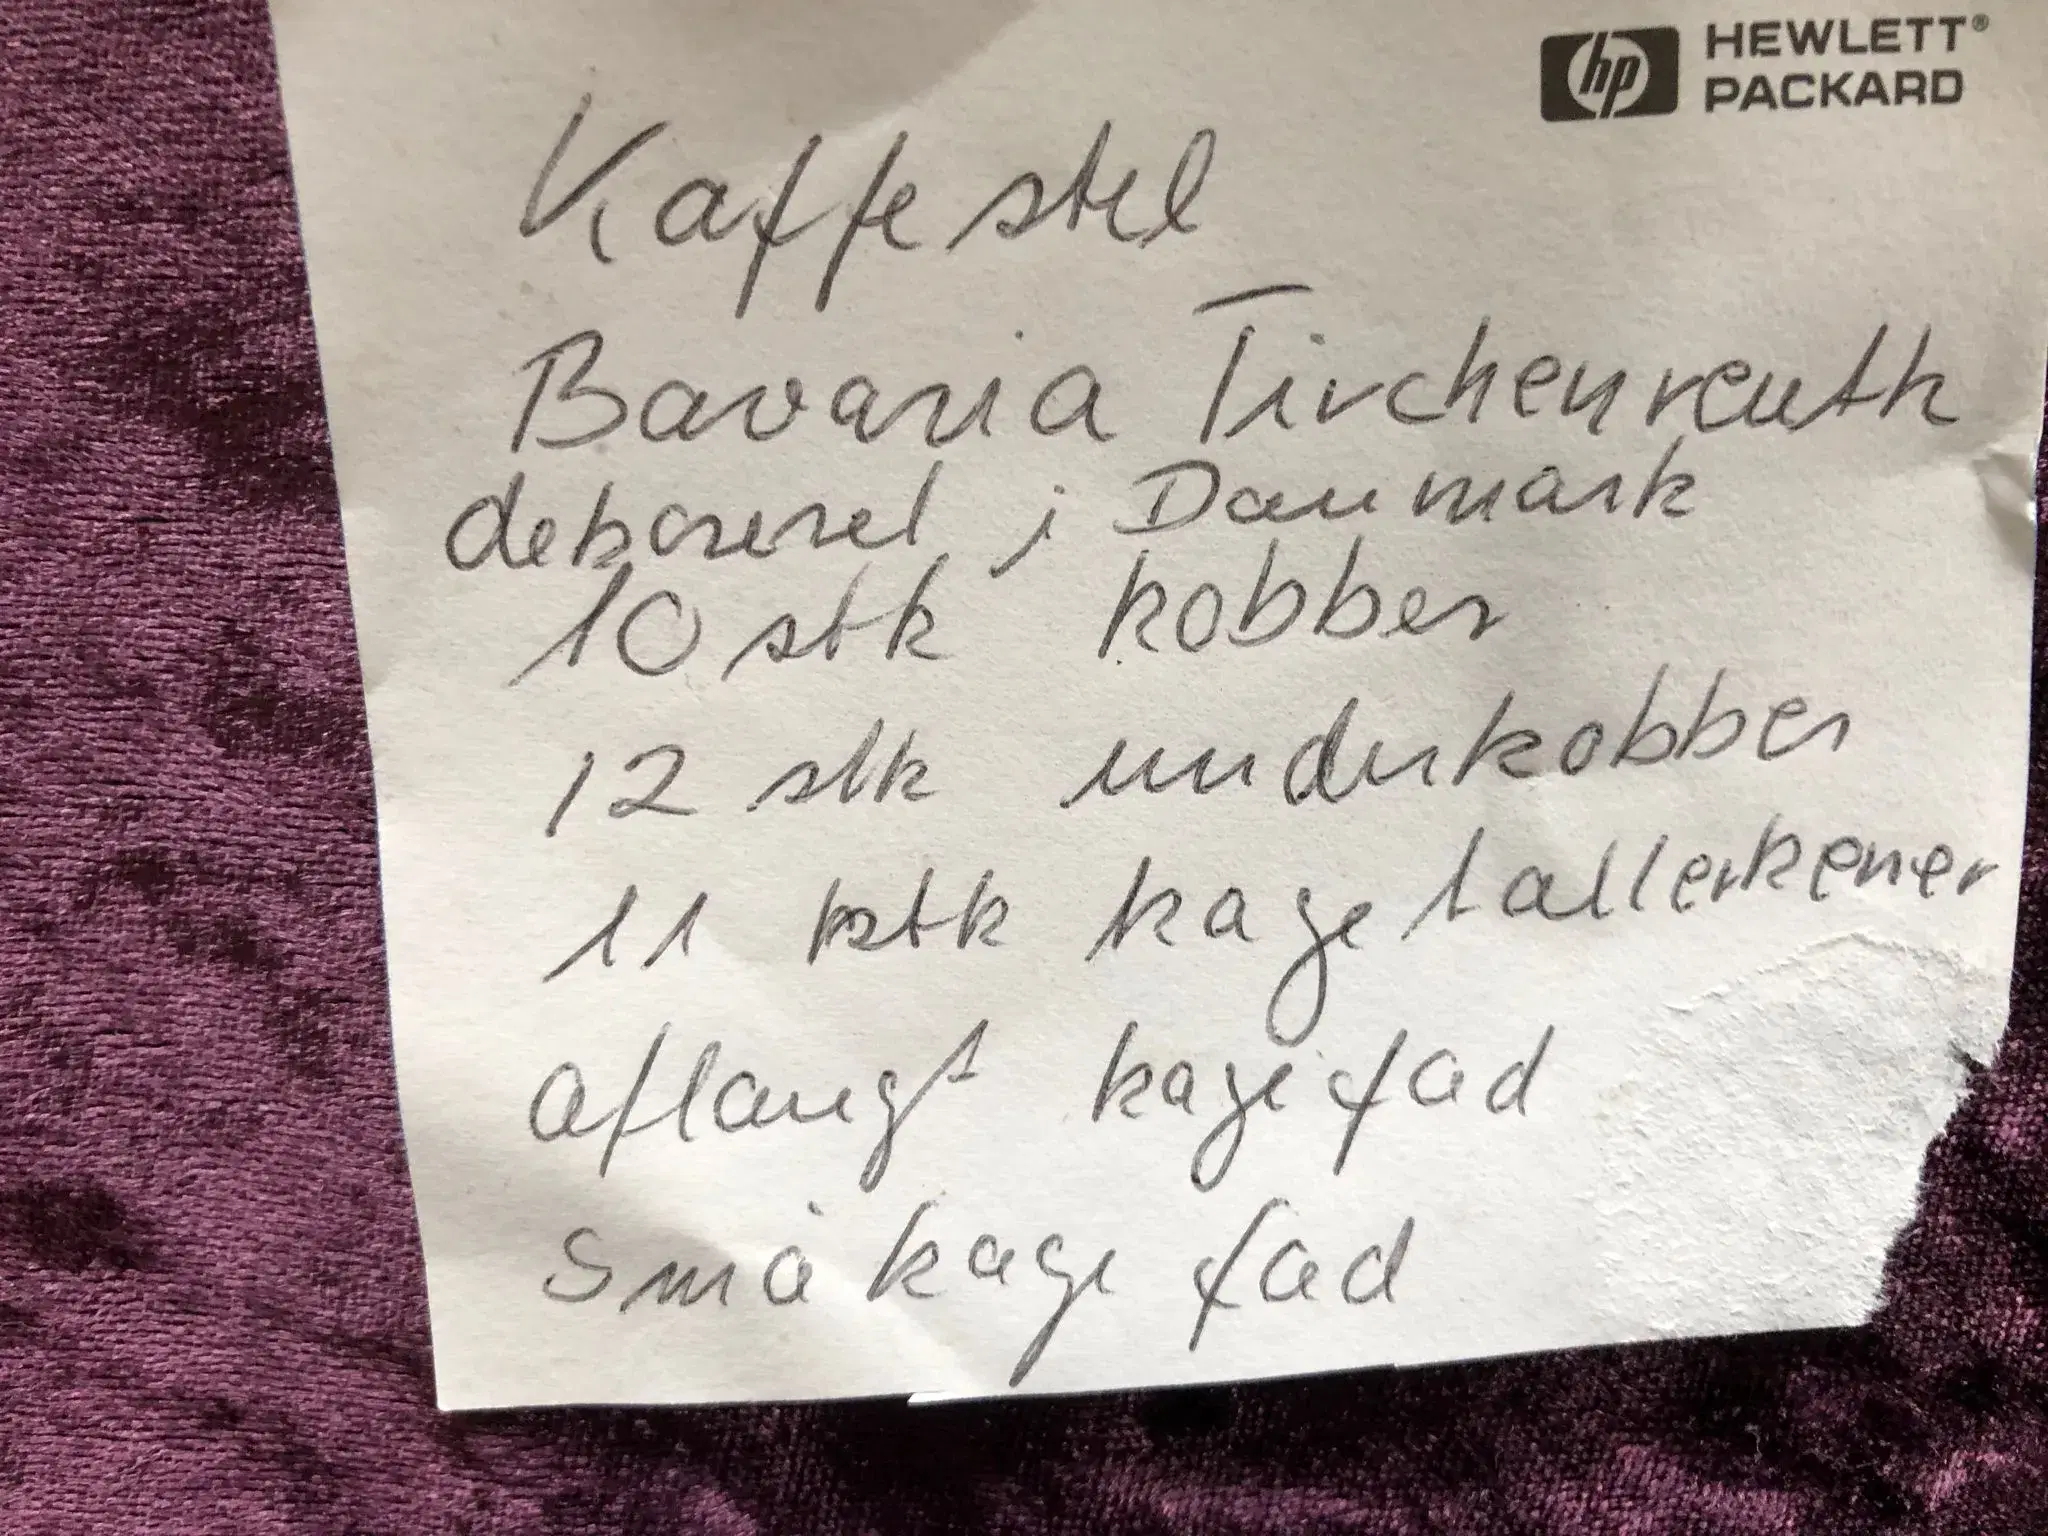 hp HEWLETT®
PACKARD
Kaffestel
Bavaria Tirchenreuth
dekoreret i Danmark
10 stk kobber
12 stk underkobber
11 stk kagetallerkener
aflangt kagefad
Småkagefad